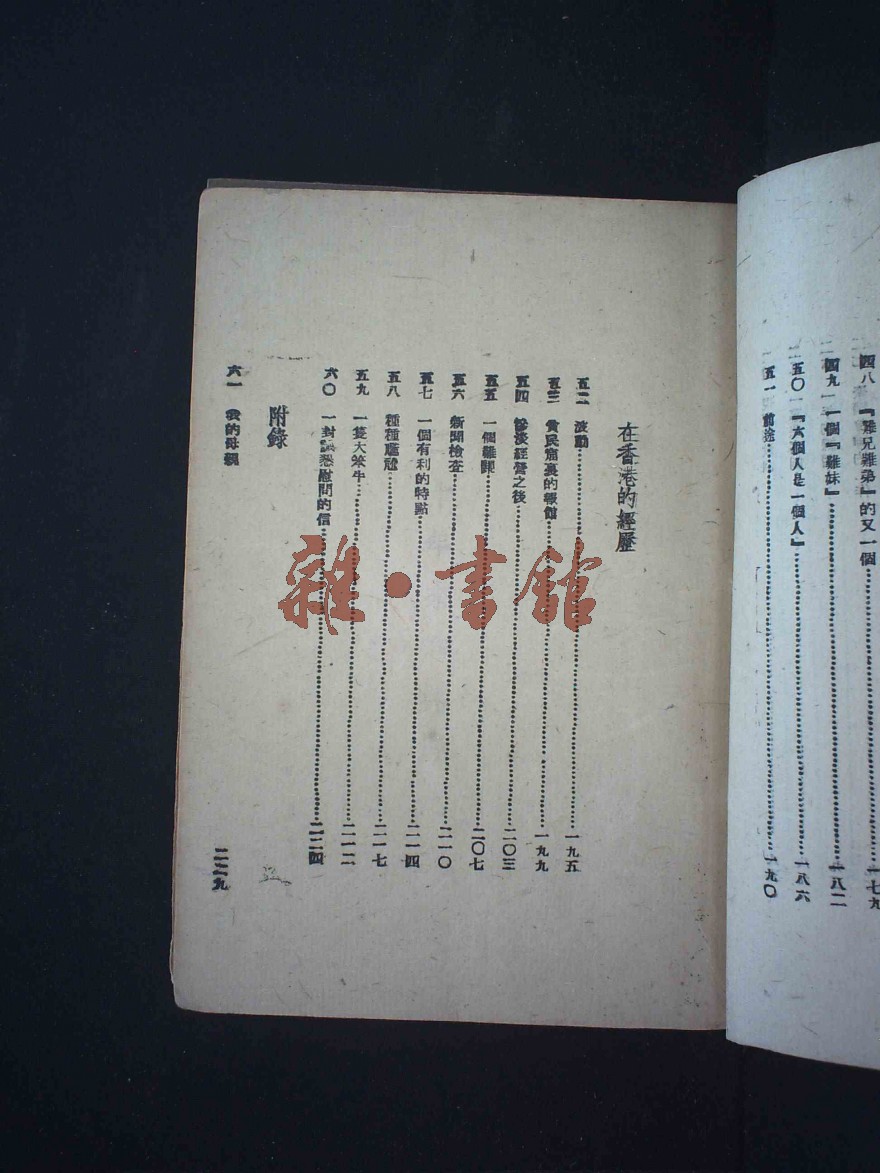 四八 『難兄難弟』的又一個 一七九
四九 一個『難妹』 一八二
五〇 『六個人是一個人』 一八六
五一 前途 一九〇
在香港的經歷
五二 波動 一九五
五三 貧民窟裏的報館 一九九
五四 慘淡經營之後 二〇三
五五 一個難關 二〇七
五六 新聞檢查 二一〇
五七 一個有利的特點 二一四
五八 種種尷尬 二一七
五九 一隻大笨牛
六〇 一封誠懇慰問的信 二二四
附錄
六一 我的母親 二二九
雜·書館